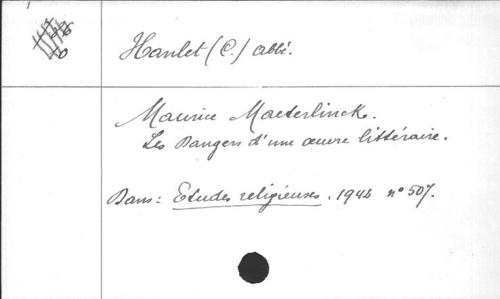 Hanlet (C.) abbé.
Maurice Maeterlinck.
Les Dangers d'une œuvre littéraire.
Dans: Etudes religieuses. 1942 n° 507.